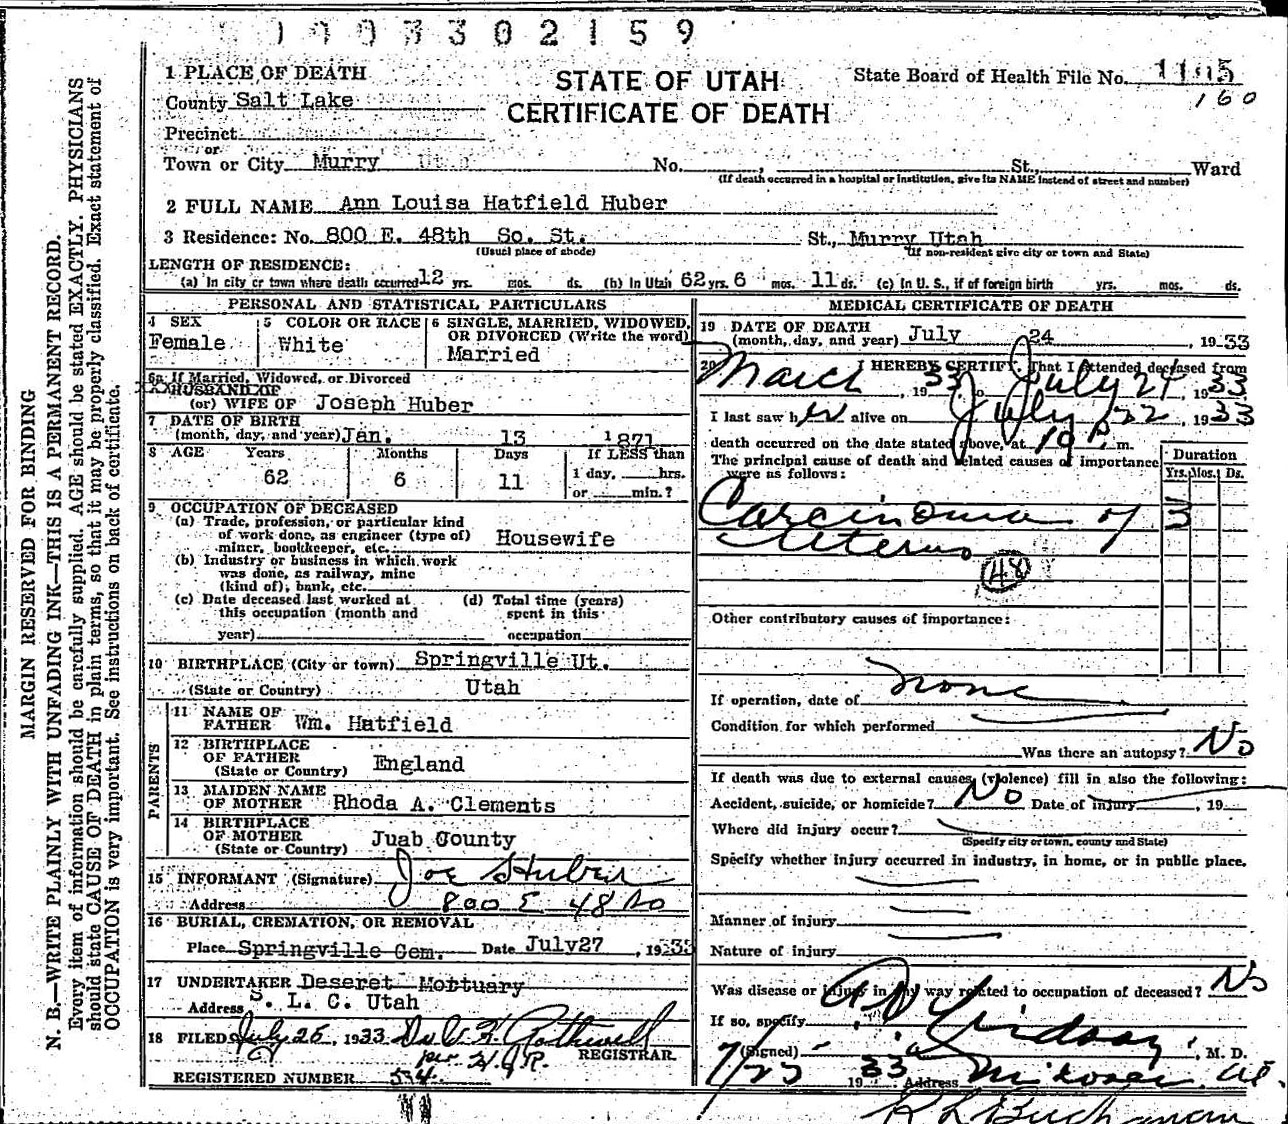 1 9 3 3 3 0 2 1 5 9
MARGIN RESERVED FOR BINDING
N. B.—WRITE PLAINLY WITH UNFADING INK—THIS IS A PERMANENT RECORD.
Every item of information should be carefully supplied. AGE should be stated EXACTLY. PHYSICIANS
should state CAUSE OF DEATH in plain terms, so that it may be properly classified. Exact statement of
OCCUPATION is very important. See instructions on back of certificate.
STATE OF UTAH
CERTIFICATE OF DEATH
State Board of Health File No. 1195
160
1 PLACE OF DEATH
County Salt Lake
Precinct
or
Town or City Murry Utah No. , St., Ward
(If death occurred in a hospital or institution, give its NAME instead of street and number)
2 FULL NAME Ann Louisa Hatfield Huber
3 Residence: No. 800 E. 48th So. St. St., Murry Utah
(Usual place of abode) (If non-resident give city or town and State)
LENGTH OF RESIDENCE:
(a) In city or town where death occurred 12 yrs. mos. ds. (b) In Utah 62 yrs. 6 mos. 11 ds. (c) In U. S., if of foreign birth yrs. mos. ds.
PERSONAL AND STATISTICAL PARTICULARS
4 SEX
Female
5 COLOR OR RACE
White
6 SINGLE, MARRIED, WIDOWED,
OR DIVORCED (Write the word)
Married
6a If Married, Widowed, or Divorced
HUSBAND OF
(or) WIFE OF Joseph Huber
7 DATE OF BIRTH
(month, day, and year) Jan. 13 1871
8 AGE Years Months Days If LESS than
62 6 11 1 day, hrs.
or min.?
9 OCCUPATION OF DECEASED
(a) Trade, profession, or particular kind
of work done, as engineer (type of)
miner, bookkeeper, etc. Housewife
(b) Industry or business in which work
was done, as railway, mine
(kind of), bank, etc.
(c) Date deceased last worked at
this occupation (month and
year)
(d) Total time (years)
spent in this
occupation
10 BIRTHPLACE (City or town) Springville Ut.
(State or Country) Utah
PARENTS
11 NAME OF
FATHER Wm. Hatfield
12 BIRTHPLACE
OF FATHER
(State or Country) England
13 MAIDEN NAME
OF MOTHER Rhoda A. Clements
14 BIRTHPLACE
OF MOTHER
(State or Country) Juab County
15 INFORMANT (Signature) Joe Huber
Address 800 E 48 So
16 BURIAL, CREMATION, OR REMOVAL
Place Springville Cem. Date July27, 1933
17 UNDERTAKER Deseret Mortuary
Address S. L. C. Utah
18 FILED July 25, 1933
per H.J.R. REGISTRAR
REGISTERED NUMBER 534
MEDICAL CERTIFICATE OF DEATH
19 DATE OF DEATH
(month, day, and year) July 24, 1933
20 I HEREBY CERTIFY, That I attended deceased from
March, 1933, to July 24, 1933
I last saw her alive on July 22, 1933
death occurred on the date stated above, at 10 P. m.
The principal cause of death and related causes of importance
were as follows:
Duration
Yrs. Mos. Ds.
Carcinoma of 3
Uterus
48
Other contributory causes of importance:
If operation, date of none
Condition for which performed
Was there an autopsy? No
If death was due to external causes (violence) fill in also the following:
Accident, suicide, or homicide? No Date of injury , 19
Where did injury occur?
(Specify city or town, county and State)
Specify whether injury occurred in industry, in home, or in public place.
Manner of injury
Nature of injury
Was disease or injury in any way related to occupation of deceased? No
If so, specify
(Signed) Lindsay, M. D.
7/25 1933 Address